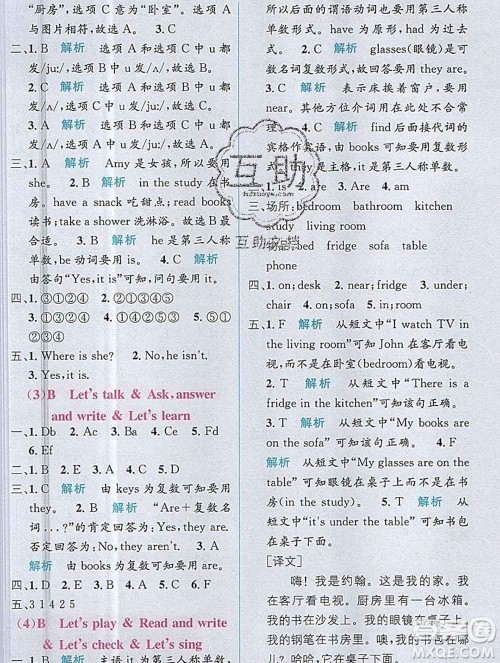 “厨房”，选项 C 意为“卧室”。选项 A
与图片符符，故选 A。
二、1. B 解析 选项 A 和选项 C 中 u 都
发/juː/，选项 B 中 u 发/ʌ/，故选 B。
2. C 解析 选项 A 和选项 B 中 u 都
发/juː/，选项 C 中 u 发/ʌ/，故选 C。
3. A 解析 选项 B 和选项 C 中 u 都
发/ʌ/，选项 A 中 u 发/juː/，故选 A。
三、1. A 解析 Amy 是女孩，所以要用
she。 2. B 解析 in the study 在书
房；have a snack 吃甜点；read books
读书；take a shower 洗淋浴。故选 B。
3. B 解析 he 是第三人称单
数，be 动词要用 is。 4. C 解析
由答句“Yes, it is”可知应用 it。
四、1. ③①②④ 2. ①③②④
3. ①③②④
五、1. Where is she? 2. No, he isn't.
3. Yes, it is.
(3)B Let's talk & Ask, answer
and write & Let's learn
一、1. Db 2. Ac 3. Ba 4. Cd 5. Fe
6. Ef
二、1. B 2. C 3. A 4. A
三、1. C 解析 由 keys 为复数可知要用
are。 2. B 解析 “Are＋复数名
词…?”的肯定回答为：Yes, they are.
否定回答为：No, they aren't. 3. A
解析 由 books 为复数可知要用 are。
四、1. D 2. A 3. C 4. B
五、3 1 4 2 5
(4)B Let's play & Read and write
& Let's check & Let's sing
一、1. B 解析 主语 it 为第三人称单数，
所以前面的谓语动词也要用第三人称
单数形式，have 的第三人称单数形式
为 has。 2. C 解析 glasses(眼镜)是可
数名词复数形式，故回答要用 they are.
3. B 解析 表示床挨着窗户，要用
near。其他方位介词用在此处不合常
理。 4. A 解析 find 后面接代词的
宾格作宾语，由 books 可知要用复数形
式，they 是主格，it 是第三人称单数。
二、1. is 2. are 3. Are 4. am
三、场所：bedroom bathroom kitchen
study living room
物品：bed fridge sofa table
phone
四、1. on; desk 2. near; fridge 3. on;
chair 4. on; sofa 5. in; bedroom
五、1. F 解析 从短文中“I watch TV in
the living room”可知 John 在客厅看电
视，而不是在卧室(bedroom)看电视。
2. T 解析 从短文中“There is a
fridge in the kitchen”可知该句正确。
3. T 解析 从短文中“My books are
on the sofa”可知该句正确。 4. F
解析 从短文中“My glasses are on the
table”可知眼镜在桌子上而不是在书
房(in the study)。 5. T 解析 从短
文中“it's under the table”可知书包
在桌子下面。
[译文]
嗨！我是约翰。这是我的家。我
在客厅看电视。厨房里有一台冰箱。
我的书在沙发上。我的眼镜在桌子上。
我的钢笔在书房里。噢，我的书包呢？
看！它在桌子下面。
互助
h2zuoye.com
互助文档
MXQE.COM